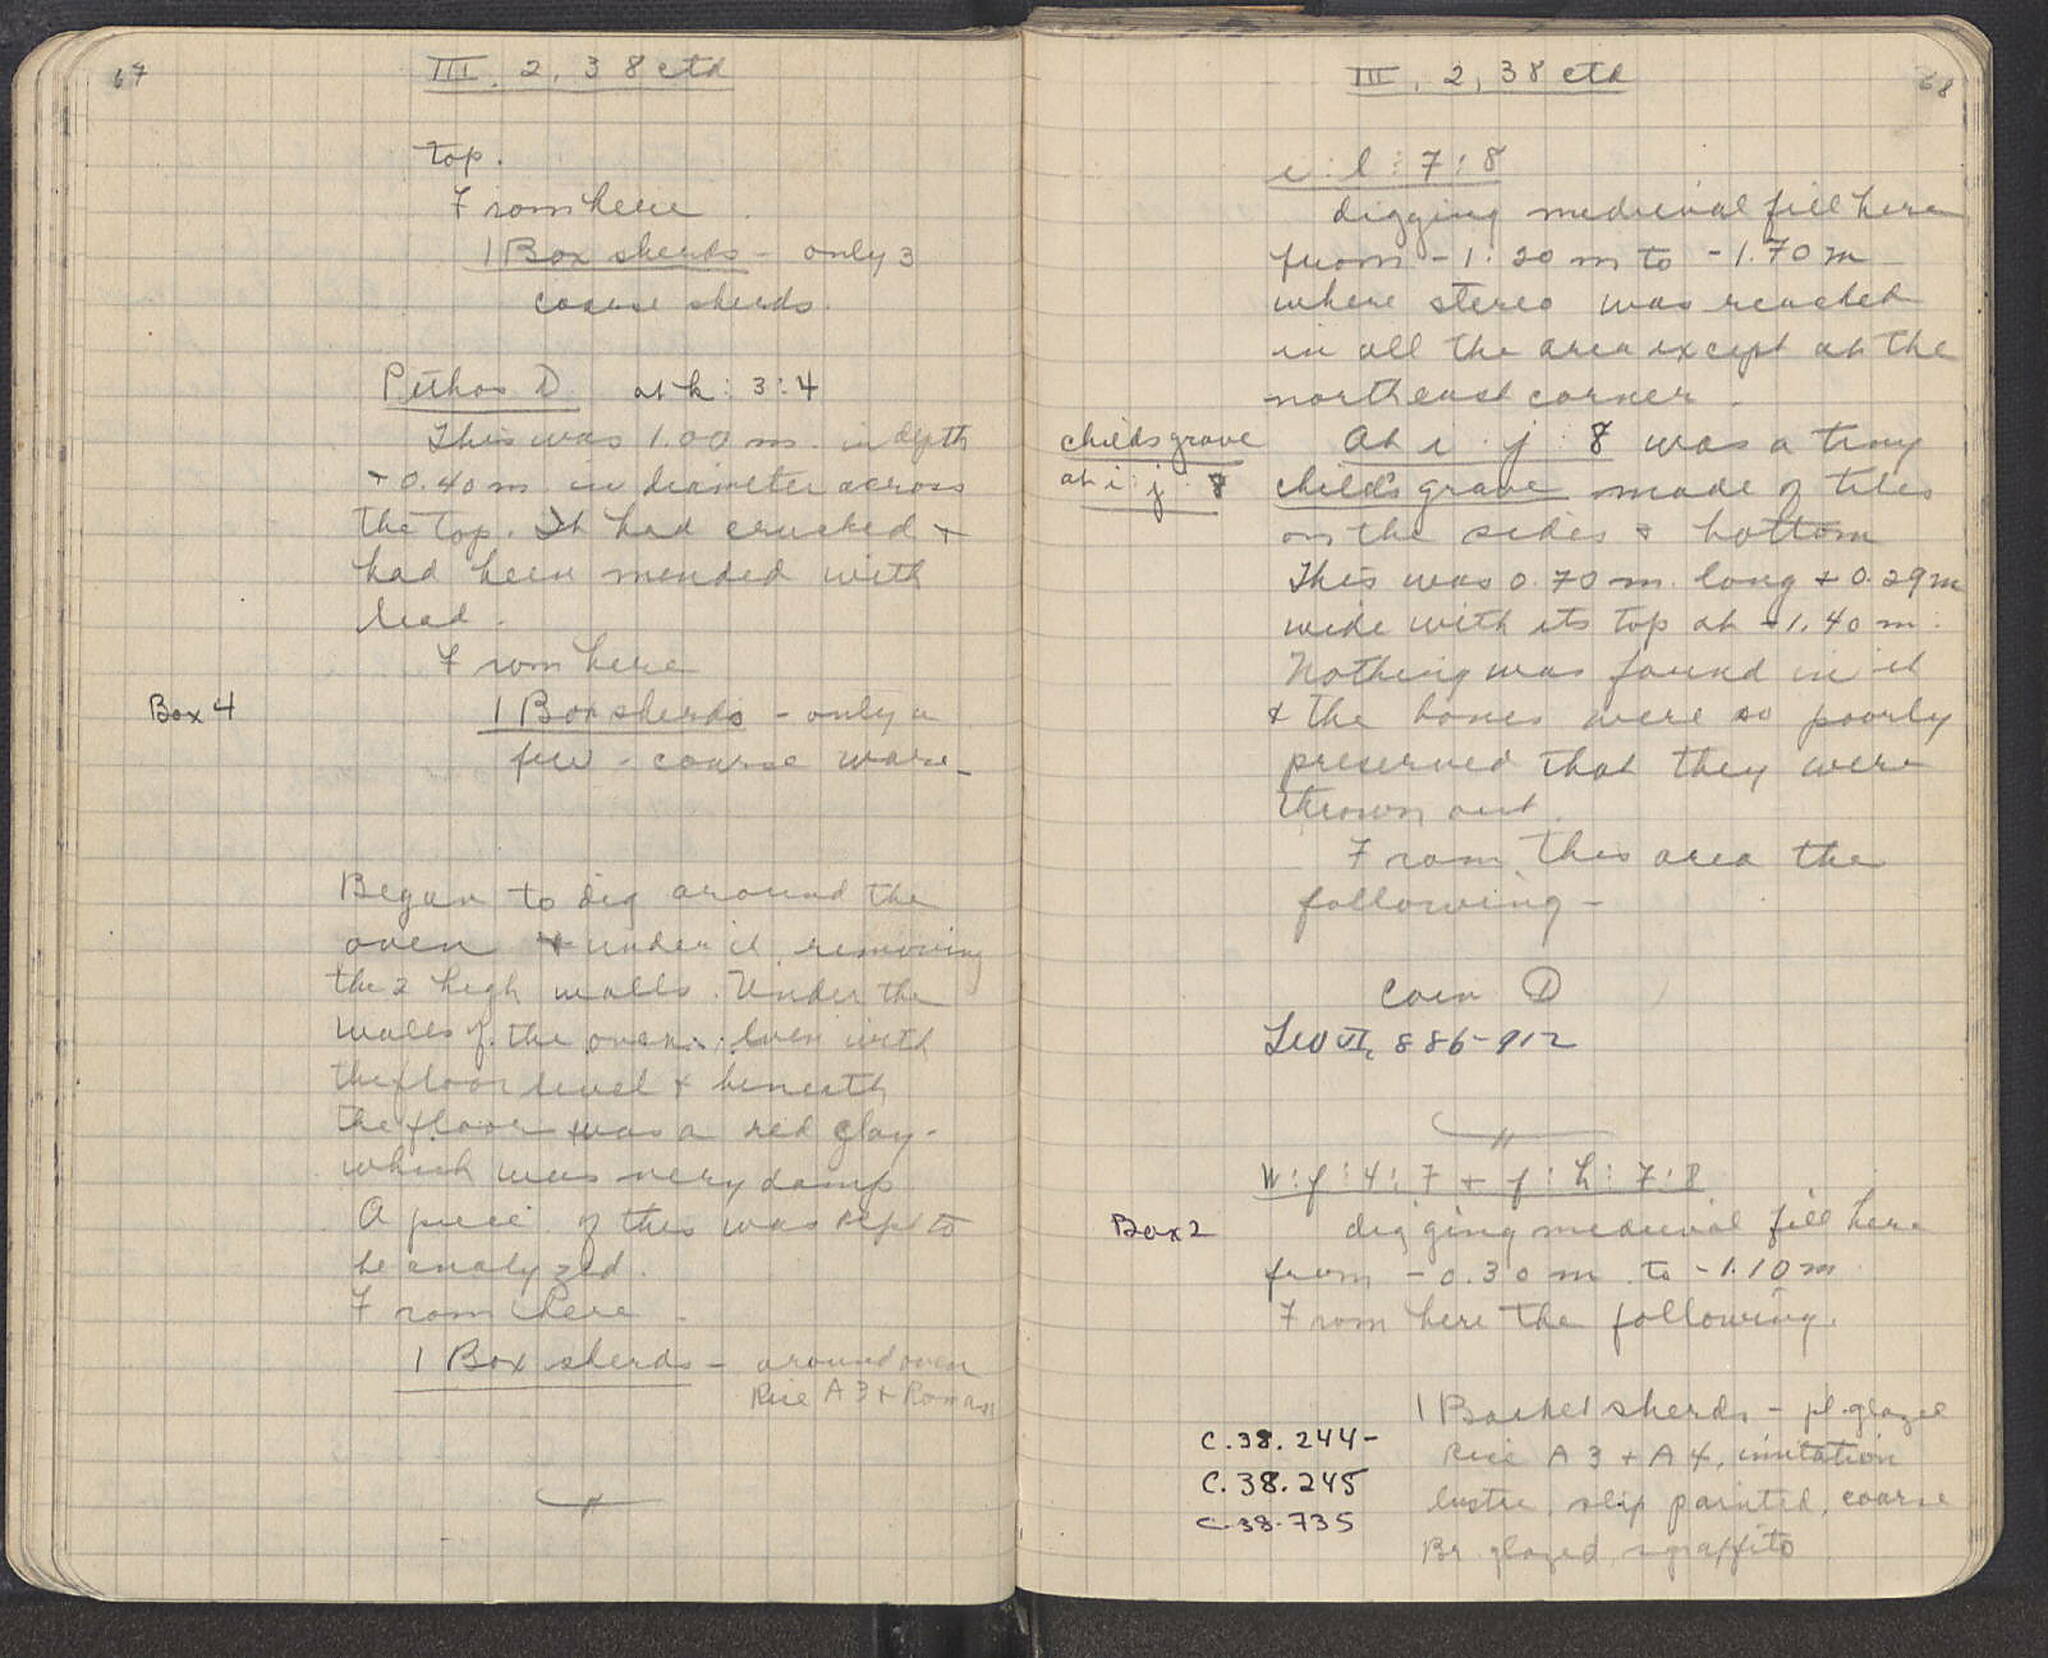 67
III, 2, 38 ctd
top.
From here
1 Box sherds - only 3
coarse sherds.
Pithos D at k : 3 : 4
This was 1.00 m. in depth
+ 0.40 m. in diameter across
the top. It had cracked +
had been mended with
lead.
From here
Box 4
1 Box sherds - only a
few - coarse ware -
Began to dig around the
oven + under it, removing
the 2 high walls. Under the
walls of the oven, even with
the floor level + beneath
the floor was a red clay -
which was very damp
A piece of this was kept to
be analyzed.
From here
1 Box sherds - around oven
Rice A 3 + Roman
68
III, 2, 38 ctd
i : l : 7 : 8
digging medieval fill here
from - 1.20 m to - 1.70 m
where stereo was reached
in all the area except at the
northeast corner.
childs grave
at i : j : 8
At i : j : 8 was a tiny
child's grave made of tiles
on the sides + bottom
This was 0.70 m. long + 0.29 m
wide with its top at - 1.40 m.
Nothing was found in it
+ the bones were so poorly
preserved that they were
thrown out.
From this area the
following -
Coin D
Leo VI, 886-912
W : f : 4 : 7 + f : h : 7 : 8
Box 2
digging medieval fill here
from - 0.30 m. to - 1.10 m
From here the following.
1 Basket sherds - pl. glazed
C.38.244 -
Rice A 3 + A 4, imitation
C.38.245
lustre, slip painted, coarse
C-38-735
Br. glazed, sgraffito